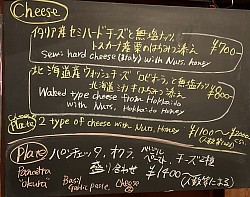 Cheese
イタリア産セミハードチーズと無塩ナッツ
トスカーナ産栗のはちみつ添え
Semi hard cheese (Italy) with Nuts, Honey
¥700〜
北海道産ウォッシュチーズ "ロビオラ"と無塩ナッツ
北海道はちみつ添え
Washed type cheese from Hokkaido
with Nuts, Hokkaido Honey
¥800〜
Plate 2 type of cheese with Nuts, Honey ¥1100〜
Plate パンチェッタ、オクラ、バジル、チーズ2種
盛り合わせ ¥1400
(人数等による)
Pancetta
okura
Basil
Garlic paste,
Cheese